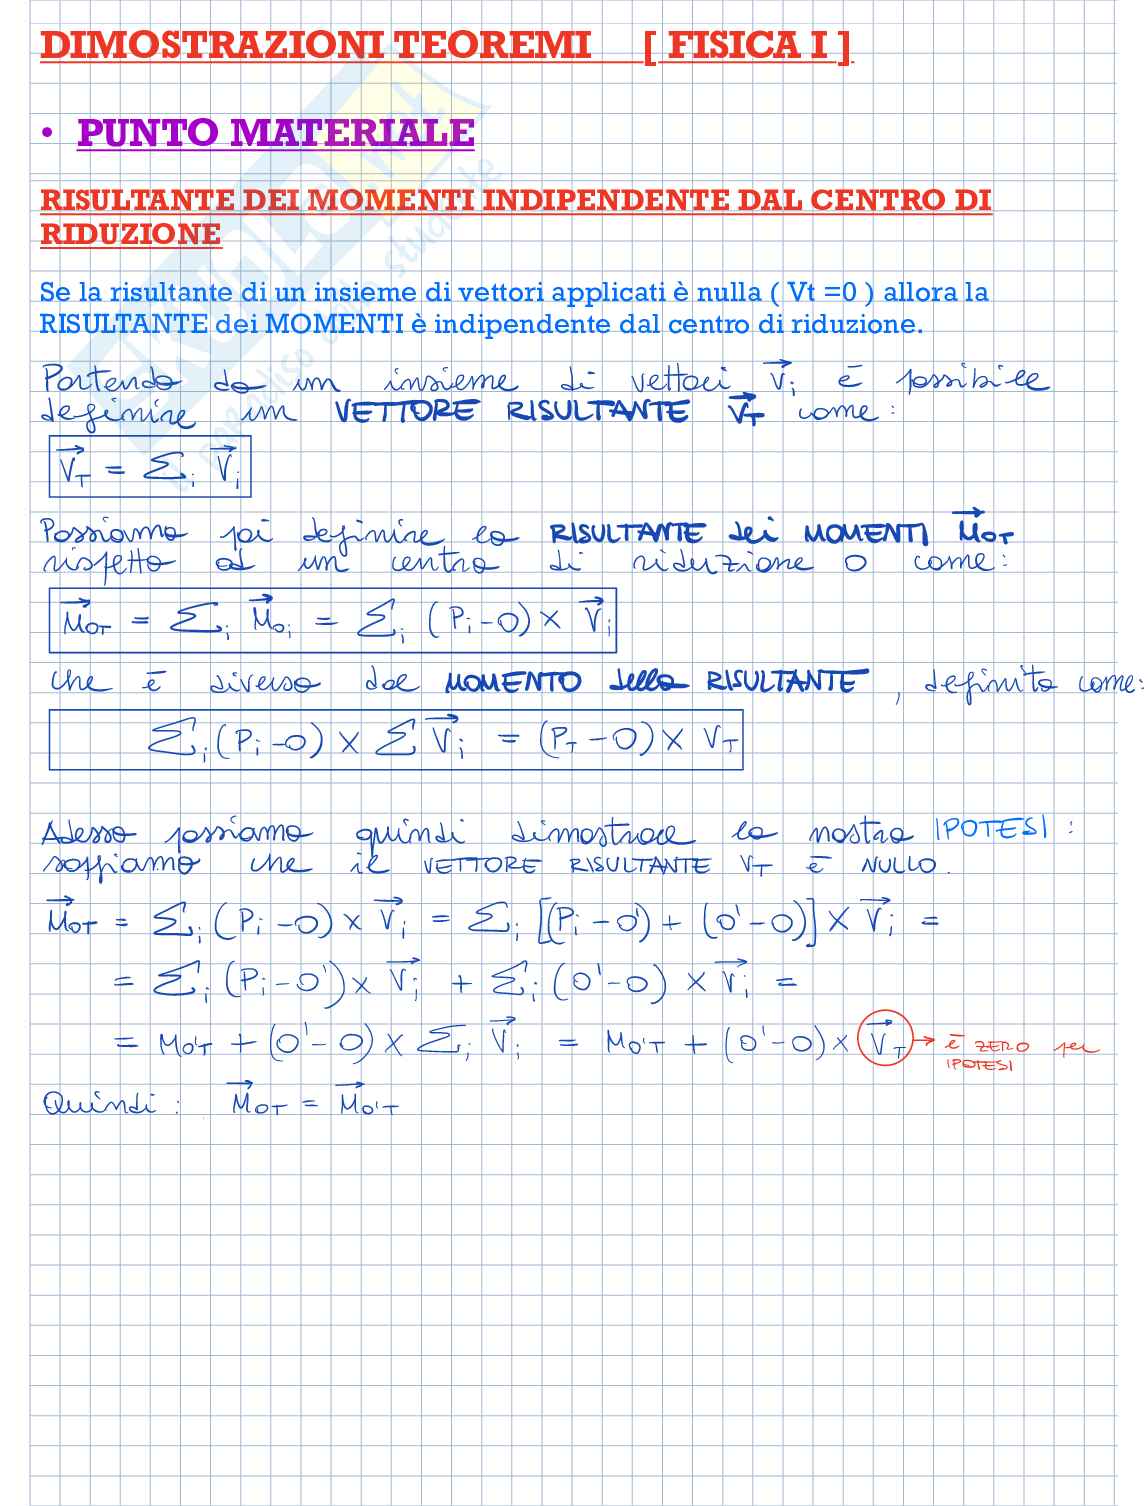 DIMOSTRAZIONI TEOREMI [ FISICA I ]
• PUNTO MATERIALE
RISULTANTE DEI MOMENTI INDIPENDENTE DAL CENTRO DI
RIDUZIONE
Se la risultante di un insieme di vettori applicati è nulla ( Vt =0 ) allora la
RISULTANTE dei MOMENTI è indipendente dal centro di riduzione.
Partendo da un insieme di vettori V⃗i è possibile
definire un VETTORE RISULTANTE V⃗T come:
V⃗T = Σi V⃗i
Possiamo poi definire la RISULTANTE dei MOMENTI M⃗OT
rispetto ad un centro di riduzione O come:
M⃗OT = Σi M⃗Oi = Σi (Pi-O) × V⃗i
che è diverso dal MOMENTO della RISULTANTE, definito come:
Σi (Pi-O) × Σ V⃗i = (PT-O) × VT
Adesso possiamo quindi dimostrare la nostra IPOTESI:
sappiamo che il VETTORE RISULTANTE VT è NULLO.
M⃗OT = Σi (Pi-O) × V⃗i = Σi [(Pi-O') + (O'-O)] × V⃗i =
= Σi (Pi-O') × V⃗i + Σi (O'-O) × V⃗i =
= MO'T + (O'-O) × Σi V⃗i = MO'T + (O'-O) × V⃗T → è ZERO per
IPOTESI
Quindi: M⃗OT = M⃗O'T